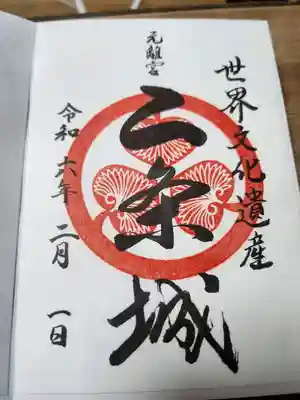 世界文化遺産
元離宮
二条城
令和六年二月一日